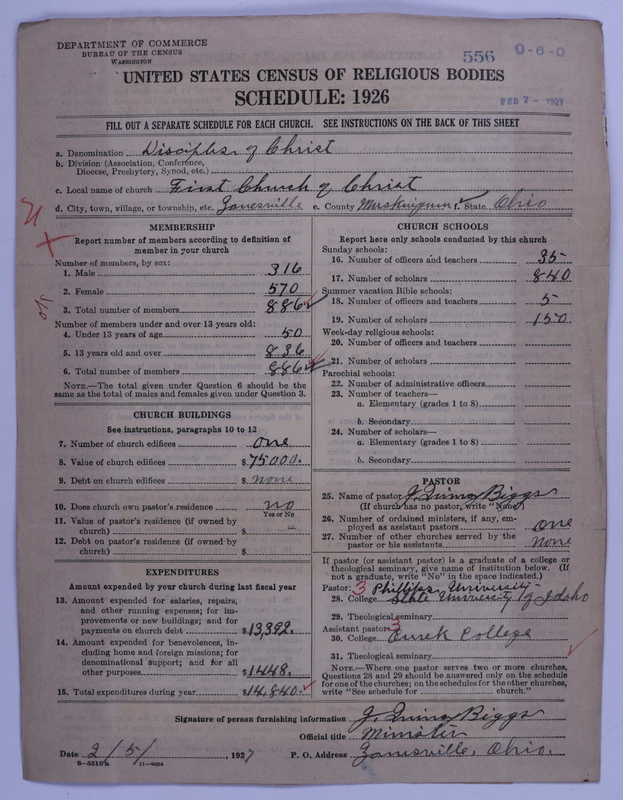 DEPARTMENT OF COMMERCE
BUREAU OF THE CENSUS
WASHINGTON
556
0-6-0
UNITED STATES CENSUS OF RELIGIOUS BODIES
SCHEDULE: 1926
FEB 7 - 1927
FILL OUT A SEPARATE SCHEDULE FOR EACH CHURCH. SEE INSTRUCTIONS ON THE BACK OF THIS SHEET
a. Denomination Disciples of Christ
b. Division (Association, Conference, Diocese, Presbytery, Synod, etc.)
c. Local name of church First Church of Christ
d. City, town, village, or township, etc. Zanesville e. County Muskingum f. State Ohio
MEMBERSHIP
Report number of members according to definition of
member in your church
Number of members, by sex:
1. Male 316
2. Female 570
3. Total number of members 886
Number of members under and over 13 years old:
4. Under 13 years of age 50
5. 13 years old and over 836
6. Total number of members 886
NOTE.—The total given under Question 6 should be the
same as the total of males and females given under Question 3.
CHURCH BUILDINGS
See instructions, paragraphs 10 to 12
7. Number of church edifices one
8. Value of church edifices $75000.
9. Debt on church edifices $ none
10. Does church own pastor's residence no
Yes or No
11. Value of pastor's residence (if owned by
church) $
12. Debt on pastor's residence (if owned by
church) $
EXPENDITURES
Amount expended by your church during last fiscal year
13. Amount expended for salaries, repairs,
and other running expenses; for im-
provements or new buildings; and for
payments on church debt $13,392.
14. Amount expended for benevolences, in-
cluding home and foreign missions; for
denominational support; and for all
other purposes $1448.
15. Total expenditures during year $14,840.
CHURCH SCHOOLS
Report here only schools conducted by this church
Sunday schools:
16. Number of officers and teachers 35
17. Number of scholars 840
Summer vacation Bible schools:
18. Number of officers and teachers 5
19. Number of scholars 150
Week-day religious schools:
20. Number of officers and teachers
21. Number of scholars
Parochial schools:
22. Number of administrative officers
23. Number of teachers—
a. Elementary (grades 1 to 8)
b. Secondary
24. Number of scholars—
a. Elementary (grades 1 to 8)
b. Secondary
PASTOR
25. Name of pastor J. Quincy Biggs
(If church has no pastor, write "None")
26. Number of ordained ministers, if any, em-
ployed as assistant pastors one
27. Number of other churches served by the
pastor or his assistants none
If pastor (or assistant pastor) is a graduate of a college or
theological seminary, give name of institution below. (If
not a graduate, write "No" in the space indicated.)
Pastor: 3 Phillips University
28. College State University of Idaho
29. Theological seminary
Assistant pastor: 3
30. College Eurek College
31. Theological seminary
NOTE.—Where one pastor serves two or more churches,
Questions 28 and 29 should be answered only on the schedule
for one of the churches; on the schedules for the other churches,
write "See schedule for church."
Signature of person furnishing information J. Quincy Biggs
Official title Minister
Date 2/5/, 1927 P. O. Address Zanesville, Ohio.